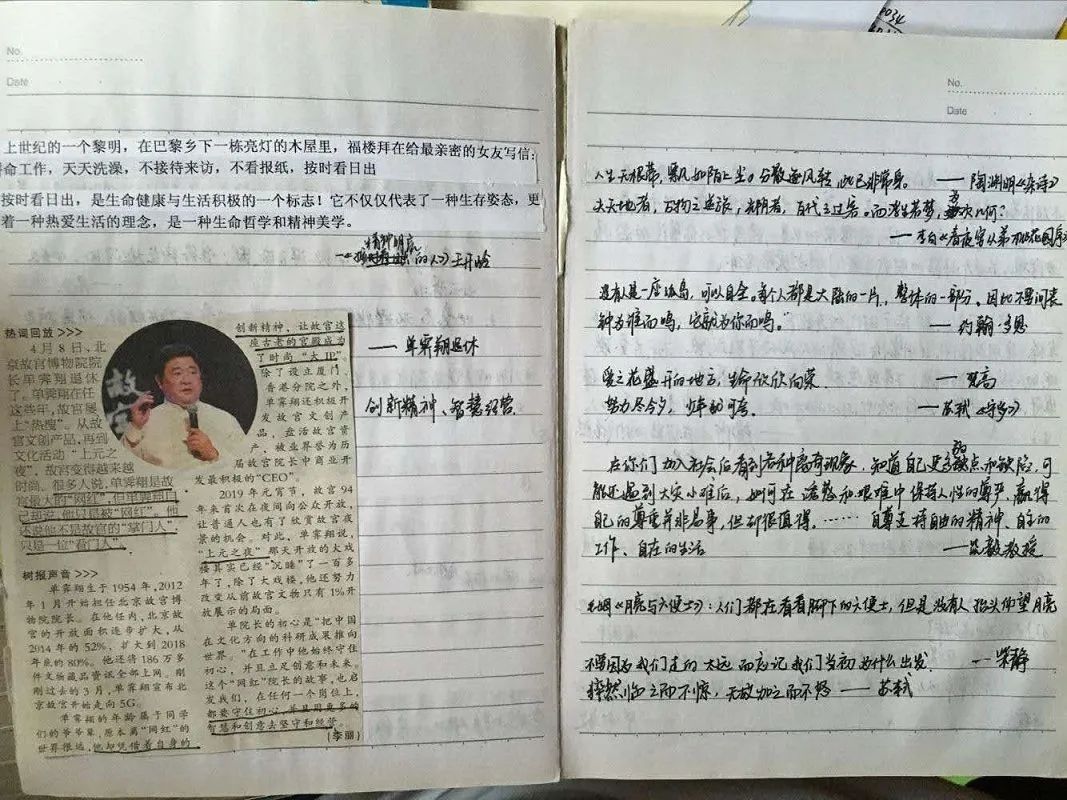 0034
No.
Date
上世纪的一个黎明，在巴黎乡下一栋亮灯的木屋里，福楼拜在给最亲密的女友写信：
拼命工作，天天洗澡，不接待来访，不看报纸，按时看日出
按时看日出，是生命健康与生活积极的一个标志！它不仅仅代表了一种生存姿态，更
着一种热爱生活的理念，是一种生命哲学和精神美学。
精神明亮
的人》王开岭
热词回放 >>>
4月8日、北
京故宫博物院院
长单霁翔退休
了。单霁翔在任
这些年，故宫屡
上“热搜”。从故
宫文创产品，再到
文化活动“上元之
夜”，故宫变得越来越
时尚。很多人说，单霁翔是故
宫最大的“网红”，但单霁翔
说，他只是被“网红”。他
还说他不是故宫的“掌门人”，
只是一位“看门人”。
树报声音 >>>
单霁翔生于1954年，2012
年1月开始担任北京故宫博
物院院长。在他任内，北京故
宫的开放面积逐步扩大，从
2014年的52%，扩大到2018
年底的80%。他还将186万多
件文物藏品资讯全部上网。刚
刚过去的3月，单霁翔宣布北
京故宫开始走向5G。
单霁翔的年龄属于同学
们的爷爷辈，原本离“网红”的
世界很远，他却凭借着自身的
创新精神，让故宫这
座古老的宫殿成为
了时尚“大IP”。
除了设立厦门、
香港分院之外，
单霁翔还积极开
发故宫文创产
品，盘活故宫资
产，被业界誉为历
届故宫院长中商业开
发最积极的“CEO”。
2019年元宵节，故宫94
年来首次在夜间向公众开放，
让普通人也有了欣赏故宫夜
景的机会。对此，单霁翔说，
“上元之夜”那天开放的大戏
楼其实已经“沉睡”了一百多
年了，除了大戏楼，他还努力
改变从前故宫文物只有1%开
放展示的局面。
单院长的初心是“把中国
在文化方向的科研成果推向
世界。”在工作中他始终守住
初心，并且立足创意和未来。
这个“网红”院长的故事，也启
发我们，在任何一个岗位上，
都要守住初心，并且用更多的
智慧和创意去坚守和经营。
(李丽)
—— 单霁翔退休
创新精神、智慧经营
No.
Date
人生无根蒂，飘如陌上尘。分散逐风转，此已非常身。 —— 陶渊明《杂诗》
夫天地者，万物之逆旅，光阴者，百代之过客。而浮生若梦，为欢几何？
—— 李白《春夜宴从弟桃花园序》
没有人是一座孤岛，可以自全。每个人都是大陆的一片，整体的一部分。因此不要问丧
钟为谁而鸣，它就为你而鸣。”
—— 约翰·多恩
爱之花盛开的地方，生命欣欣向荣。 —— 梵高
努力尽今夕，少年犹可夸。 —— 苏轼《守岁》
在你们加入社会后看到各种离奇现象，知道自己更多弱点和缺陷，可
能还遇到大灾小难后，如何在诱惑和艰难中保持人性的尊严、赢得
自己的尊重并非易事，但却很值得。…… 自尊支持自由的精神、自主的
工作、自在的生活 —— 饶毅教授
毛姆《月亮与六便士》：人们都在看着脚下的六便士，但是没有人抬头仰望月亮
不要因为我们走的太远而忘记我们当初为什么出发 —— 柴静
猝然临之而不惊，无故加之而不怒 —— 苏轼